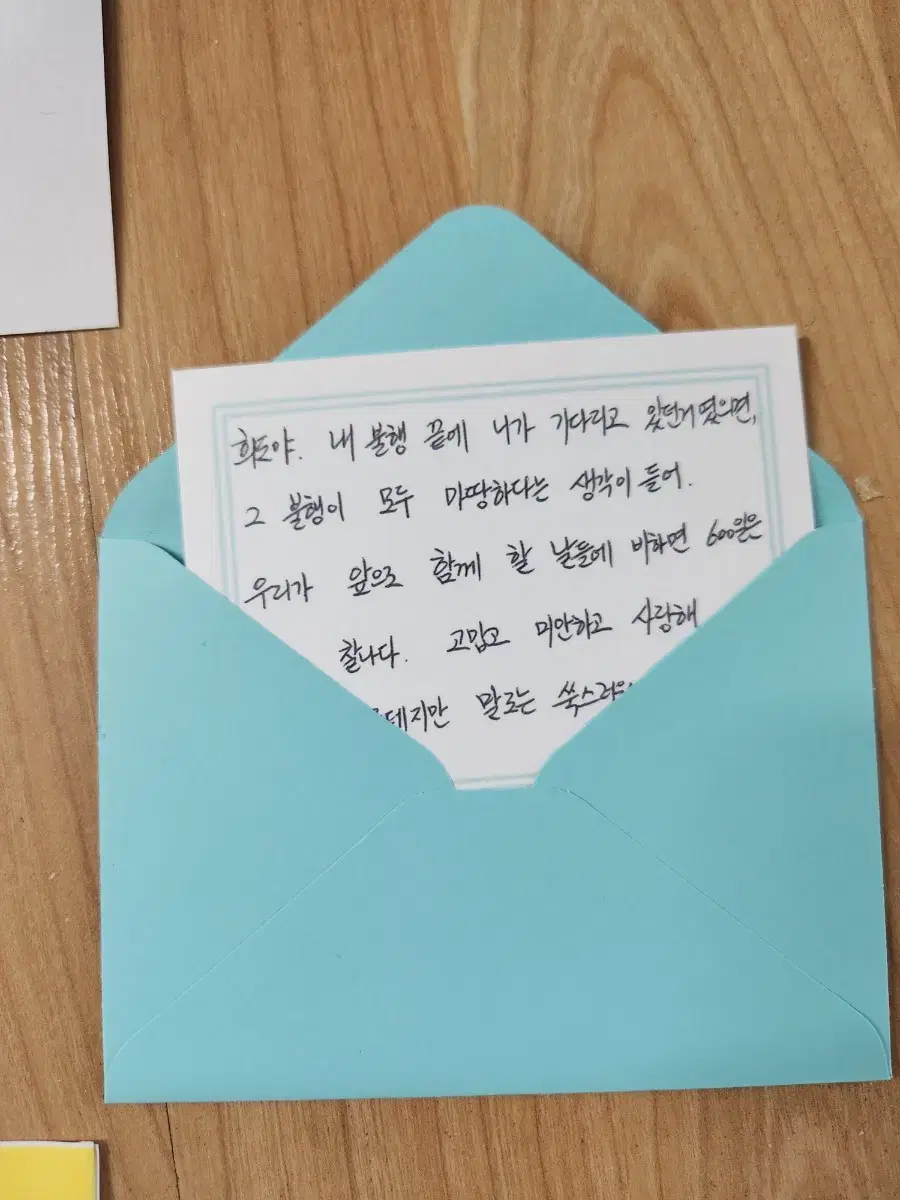 희도야. 내 불행 끝에 니가 기다리고 있던거였으면,
그 불행이 모두 마땅하다는 생각이 들어.
우리가 앞으로 함께 할 날들에 비하면 600일은
찰나다. 고맙고 미안하고 사랑해
말로는